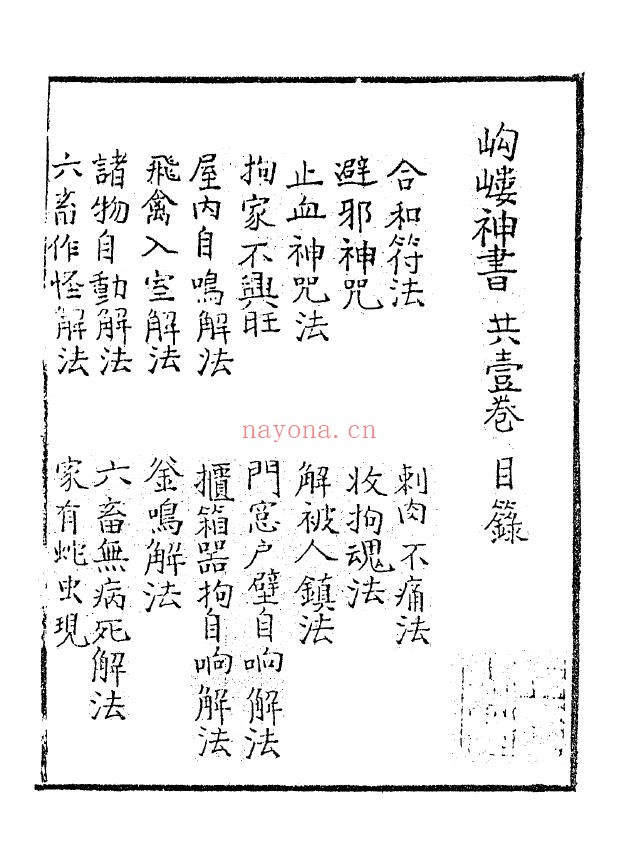 岣嶁神書 共壹卷 目錄
合和符法
刺肉不痛法
避邪神咒
收拘魂法
止血神咒法
解被人鎮法
拘家不興旺
門窓户壁自响解法
屋内自鳴解法
攞箱器拘自响解法
飛禽入室解法
釜鳴解法
諸物自動解法
六畜無病死解法
六畜作怪解法
家有蛇虫現
nayona.cn